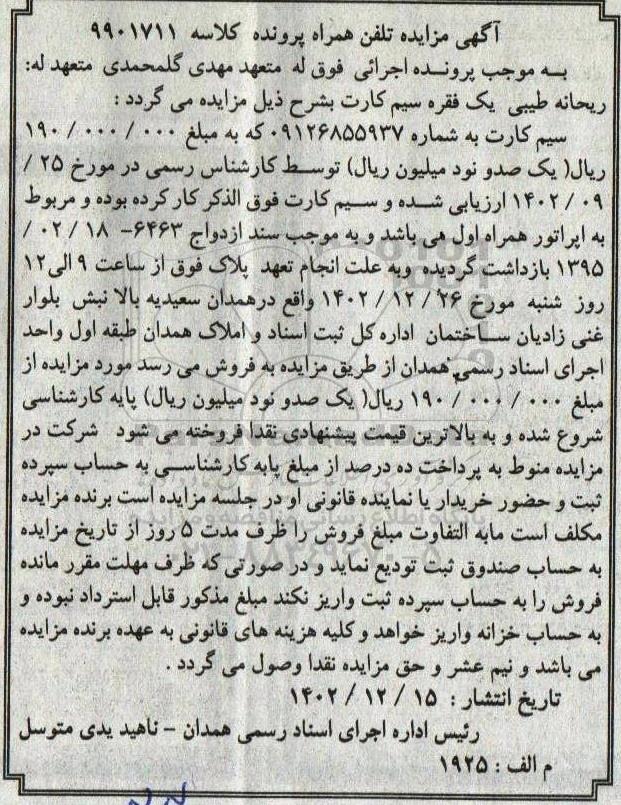 آگهی مزایده تلفن همراه پرونده کلاسه ۹۹۰۱۷۱۱
به موجب پرونده اجرائی فوق له متعهد مهدی گلمحمدی متعهد له:
ریحانه طیبی یک فقره سیم کارت بشرح ذیل مزایده می گردد :
سیم کارت به شماره ۰۹۱۲۶۸۵۵۹۳۷ که به مبلغ ۱۹۰/۰۰۰/۰۰۰
ریال( یک صدو نود میلیون ریال) توسط کارشناس رسمی در مورخ ۲۵ /
۰۹ / ۱۴۰۲ ارزیابی شده و سیم کارت فوق الذکر کار کرده بوده و مربوط
به اپراتور همراه اول می باشد و به موجب سند ازدواج ۶۴۶۳- ۱۸ / ۰۲ /
۱۳۹۵ بازداشت گردیده وبه علت انجام تعهد پلاک فوق از ساعت ۹ الی۱۲
روز شنبه مورخ ۲۶ / ۱۲ / ۱۴۰۲ واقع درهمدان سعیدیه بالا نبش بلوار
غنی زادیان ساختمان اداره کل ثبت اسناد و املاک همدان طبقه اول واحد
اجرای اسناد رسمی همدان از طریق مزایده به فروش می رسد مورد مزایده از
مبلغ ۱۹۰/۰۰۰/۰۰۰ ریال( یک صدو نود میلیون ریال) پایه کارشناسی
شروع شده و به بالاترین قیمت پیشنهادی نقدا فروخته می شود شرکت در
مزایده منوط به پرداخت ده درصد از مبلغ پایه کارشناسی به حساب سپرده
ثبت و حضور خریدار یا نماینده قانونی او در جلسه مزایده است برنده مزایده
مکلف است مابه التفاوت مبلغ فروش را ظرف مدت ۵ روز از تاریخ مزایده
به حساب صندوق ثبت تودیع نماید و در صورتی که ظرف مهلت مقرر مانده
فروش را به حساب سپرده ثبت واریز نکند مبلغ مذکور قابل استرداد نبوده و
به حساب خزانه واریز خواهد و کلیه هزینه های قانونی به عهده برنده مزایده
می باشد و نیم عشر و حق مزایده نقدا وصول می گردد .
تاریخ انتشار : ۱۵ / ۱۲ / ۱۴۰۲
رئیس اداره اجرای اسناد رسمی همدان - ناهید یدی متوسل
م الف : ۱۹۲۵